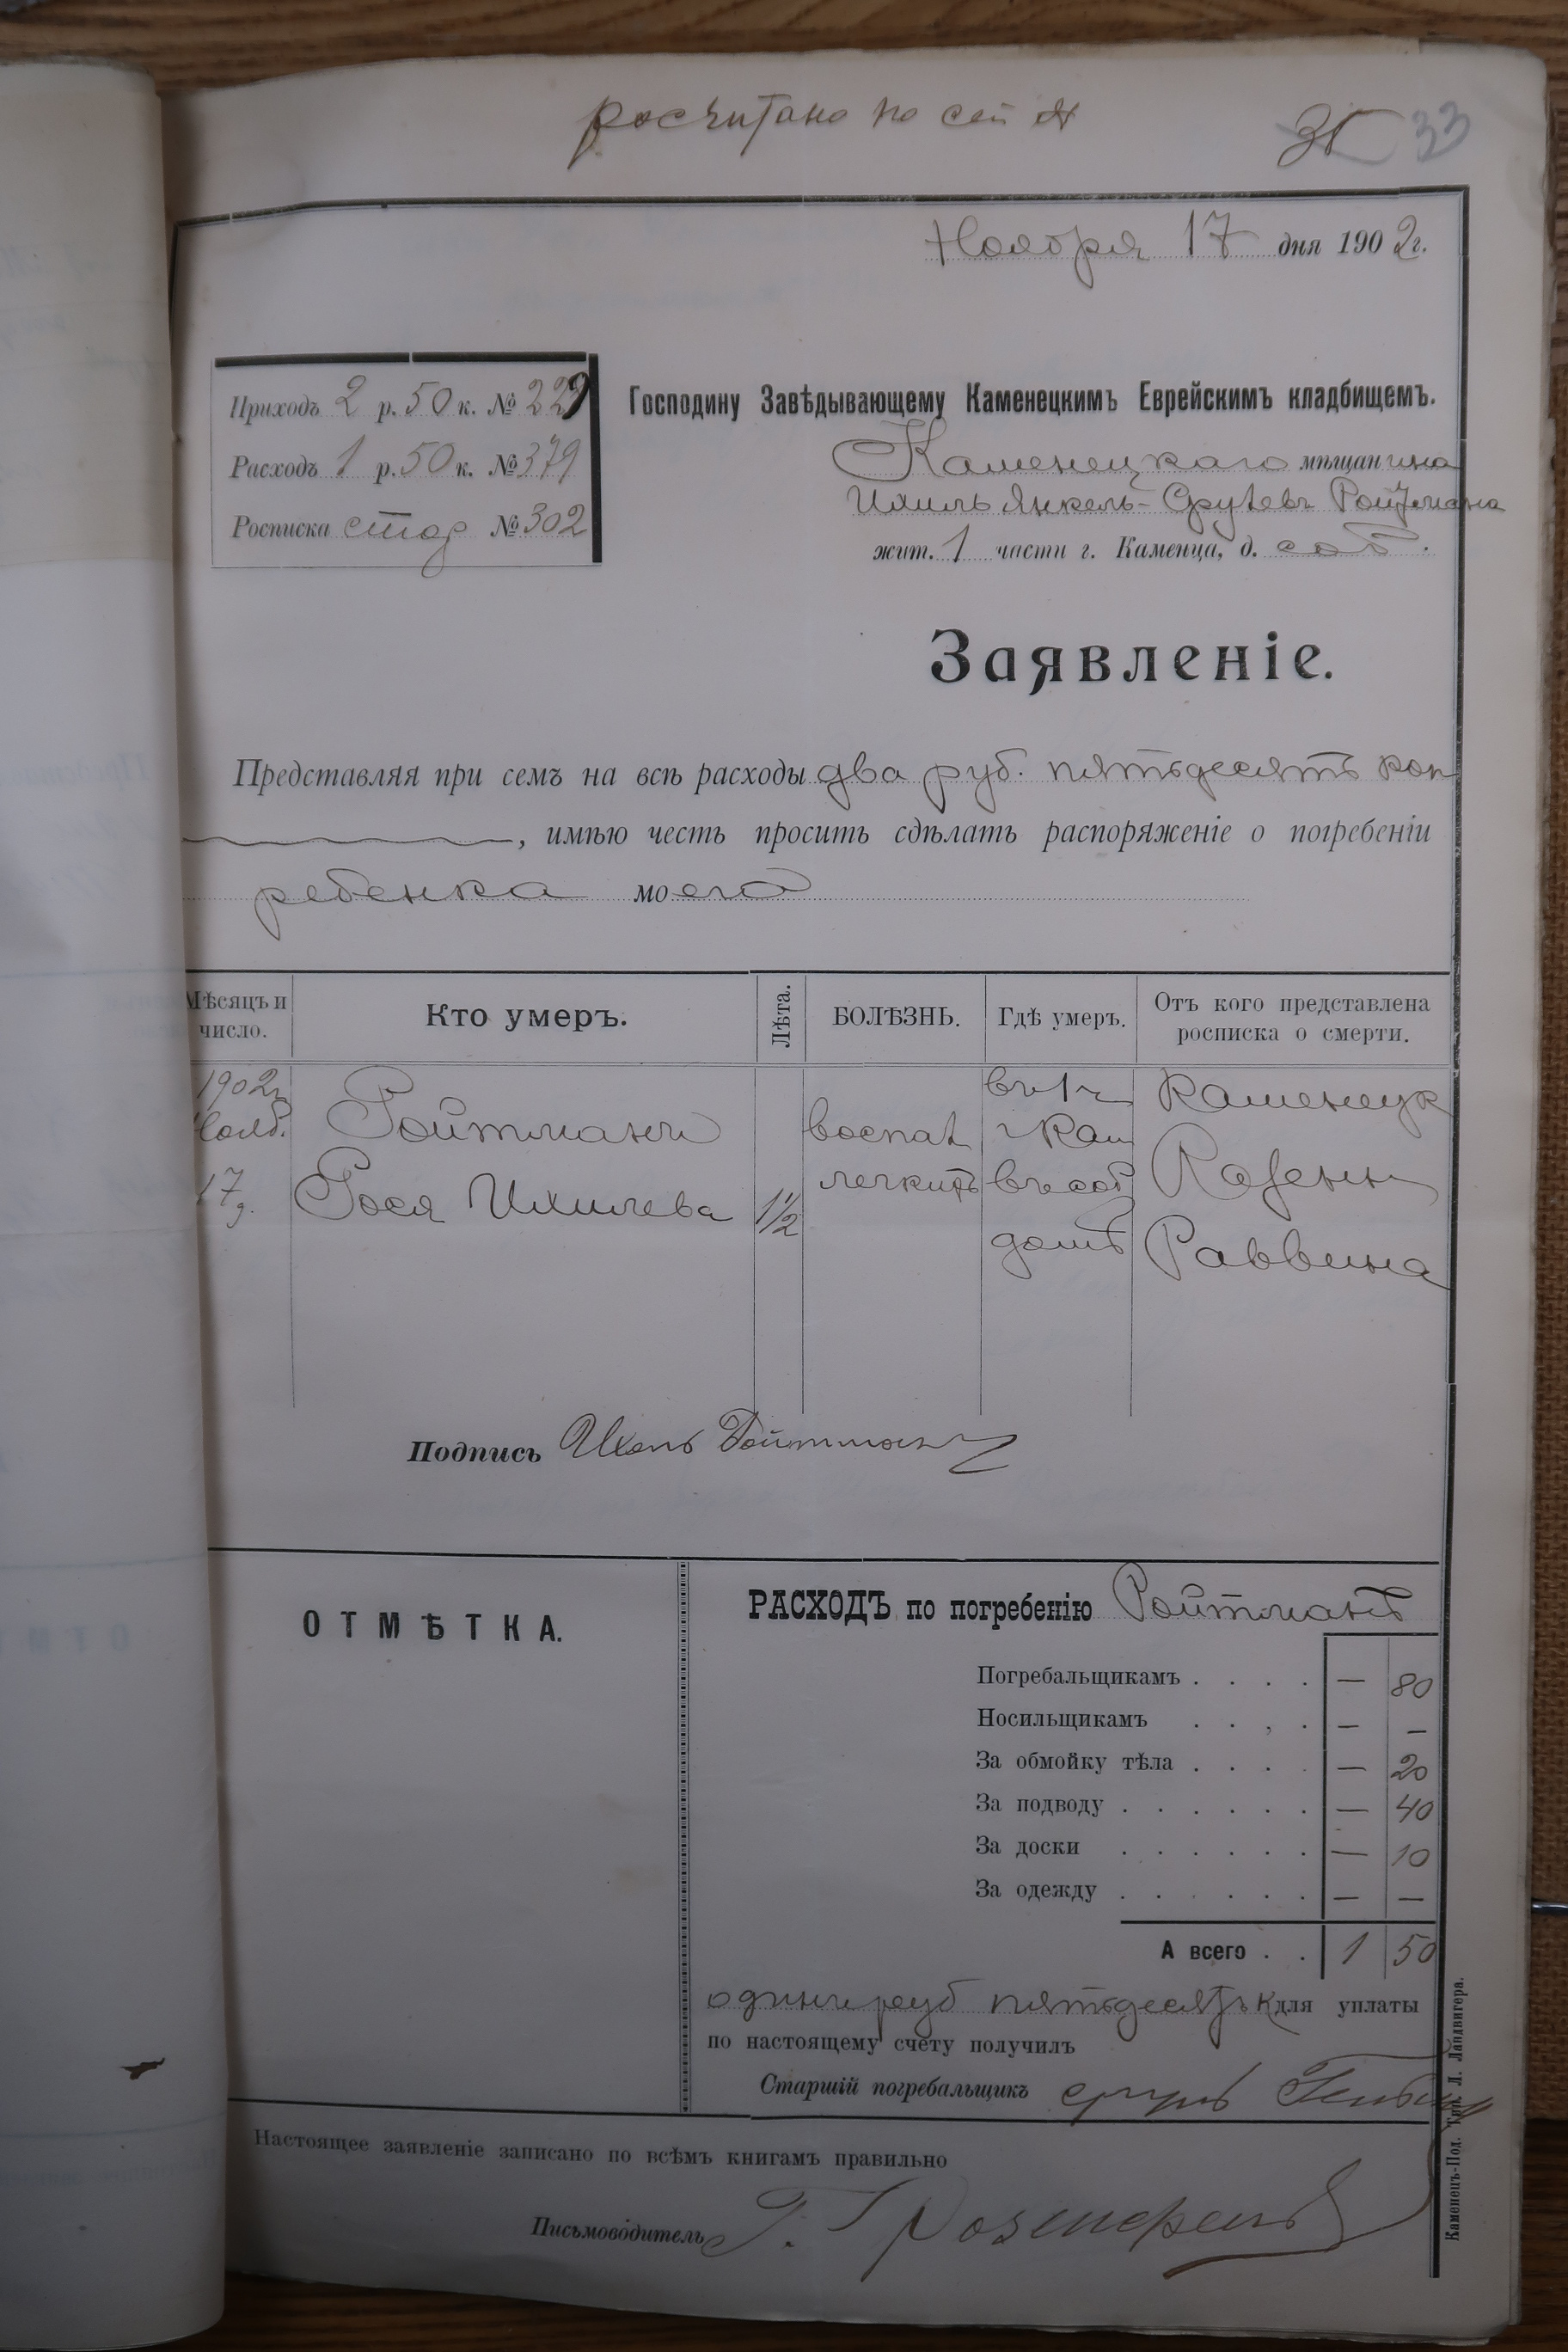 росчитано по сей №
31 33
Ноября 17 дня 1902 г.
Приходъ 2 р. 50 к. № 229
Расходъ 1 р. 50 к. № 379
Росписка стор № 302
Господину Завѣдывающему Каменецкимъ Еврейскимъ кладбищемъ.
Каменецкаго мѣщанина
Ихиль Янкель-Срулевъ Ройтмана
жит. 1 части г. Каменца, д. соб.
Заявленіе.
Представляя при семъ на всѣ расходы два руб. пятьдесятъ коп
, имѣю честь просить сдѣлать распоряженіе о погребеніи
ребенка моего
Мѣсяцъ и число.
Кто умеръ.
Лѣта.
БОЛѢЗНЬ.
Гдѣ умеръ.
Отъ кого представлена росписка о смерти.
1902 г.
Нояб.
17 д.
Ройтманъ
Рося Ихилева
1 1/2
воспал
легкихъ
въ 1 ч
г Кам
въ соб
домѣ
Каменецк
Казенн
Раввина
Подпись Ихель Ройтманъ
ОТМѢТКА.
РАСХОДЪ по погребенію Ройтманъ
Погребальщикамъ . . . . — 80
Носильщикамъ . . , . — —
За обмойку тѣла . . . . — 20
За подводу . . . . . . — 40
За доски . . . . . . — 10
За одежду . . . . . . — —
А всего . . 1 50
одинъ руб пятьдесятъ к для уплаты
по настоящему счету получилъ
Старшій погребальщикъ
Настоящее заявленіе записано по всѣмъ книгамъ правильно
Письмоводитель
Каменецъ-Под. Тип. Л. Ландвигера.